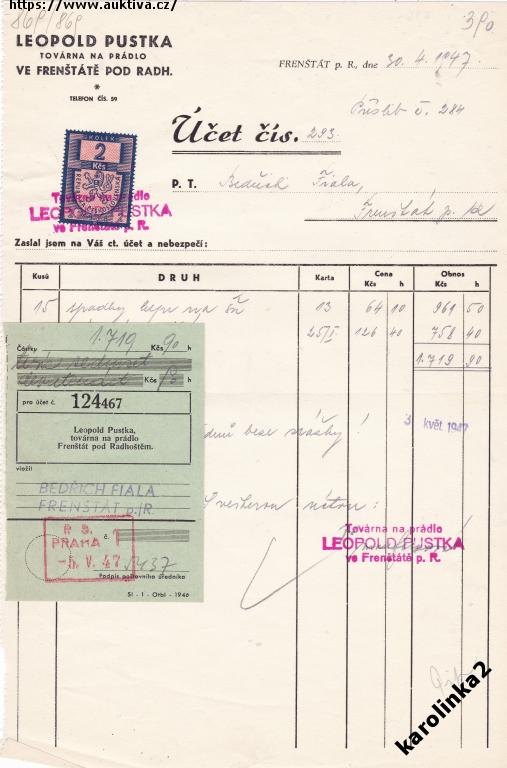 https://www.auktiva.cz/
869/869
390
LEOPOLD PUSTKA
TOVÁRNA NA PRÁDLO
VE FRENŠTÁTĚ POD RADH.
*
TELEFON ČÍS. 59
FRENŠTÁT p. R., dne 30. 4. 1947.
Příslib č. 284
Účet čís. 293.
KOLEK
2
Kčs
P. T. Bedřich Fiala,
Frenštát p. R.
Továrna na prádlo
LEOPOLD PUSTKA
ve Frenštátě p. R.
Zaslal jsem na Váš ct. účet a nebezpečí:
Kusů DRUH Karta Cena Kčs h Obnos Kčs h
15 13 64 10 961 50
25/I 126 40 758 40
1.719 90
Částky 1.719 Kčs 90 h
Kčs h
pro účet č. 124467
Leopold Pustka,
továrna na prádlo
Frenštát pod Radhoštěm.
vložil
BEDŘICH FIALA
FRENŠTÁT p./R.
3 květ 1947
č.
P. S. 1
PRAHA
-5. V. 47
Podpis poštovního úředníka
Sl - 1 - Orbi - 1946
Továrna na prádlo
LEOPOLD PUSTKA
ve Frenštátě p. R.
karolinka2